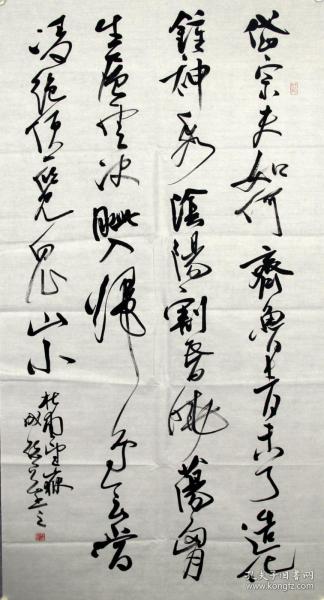 岱宗夫如何齊魯青未了造化
鍾神秀陰陽割昏曉蕩胸
生層雲決眦入歸鳥会當
凌絕頂一覽眾山小
杜甫望嶽
孔夫子旧书网